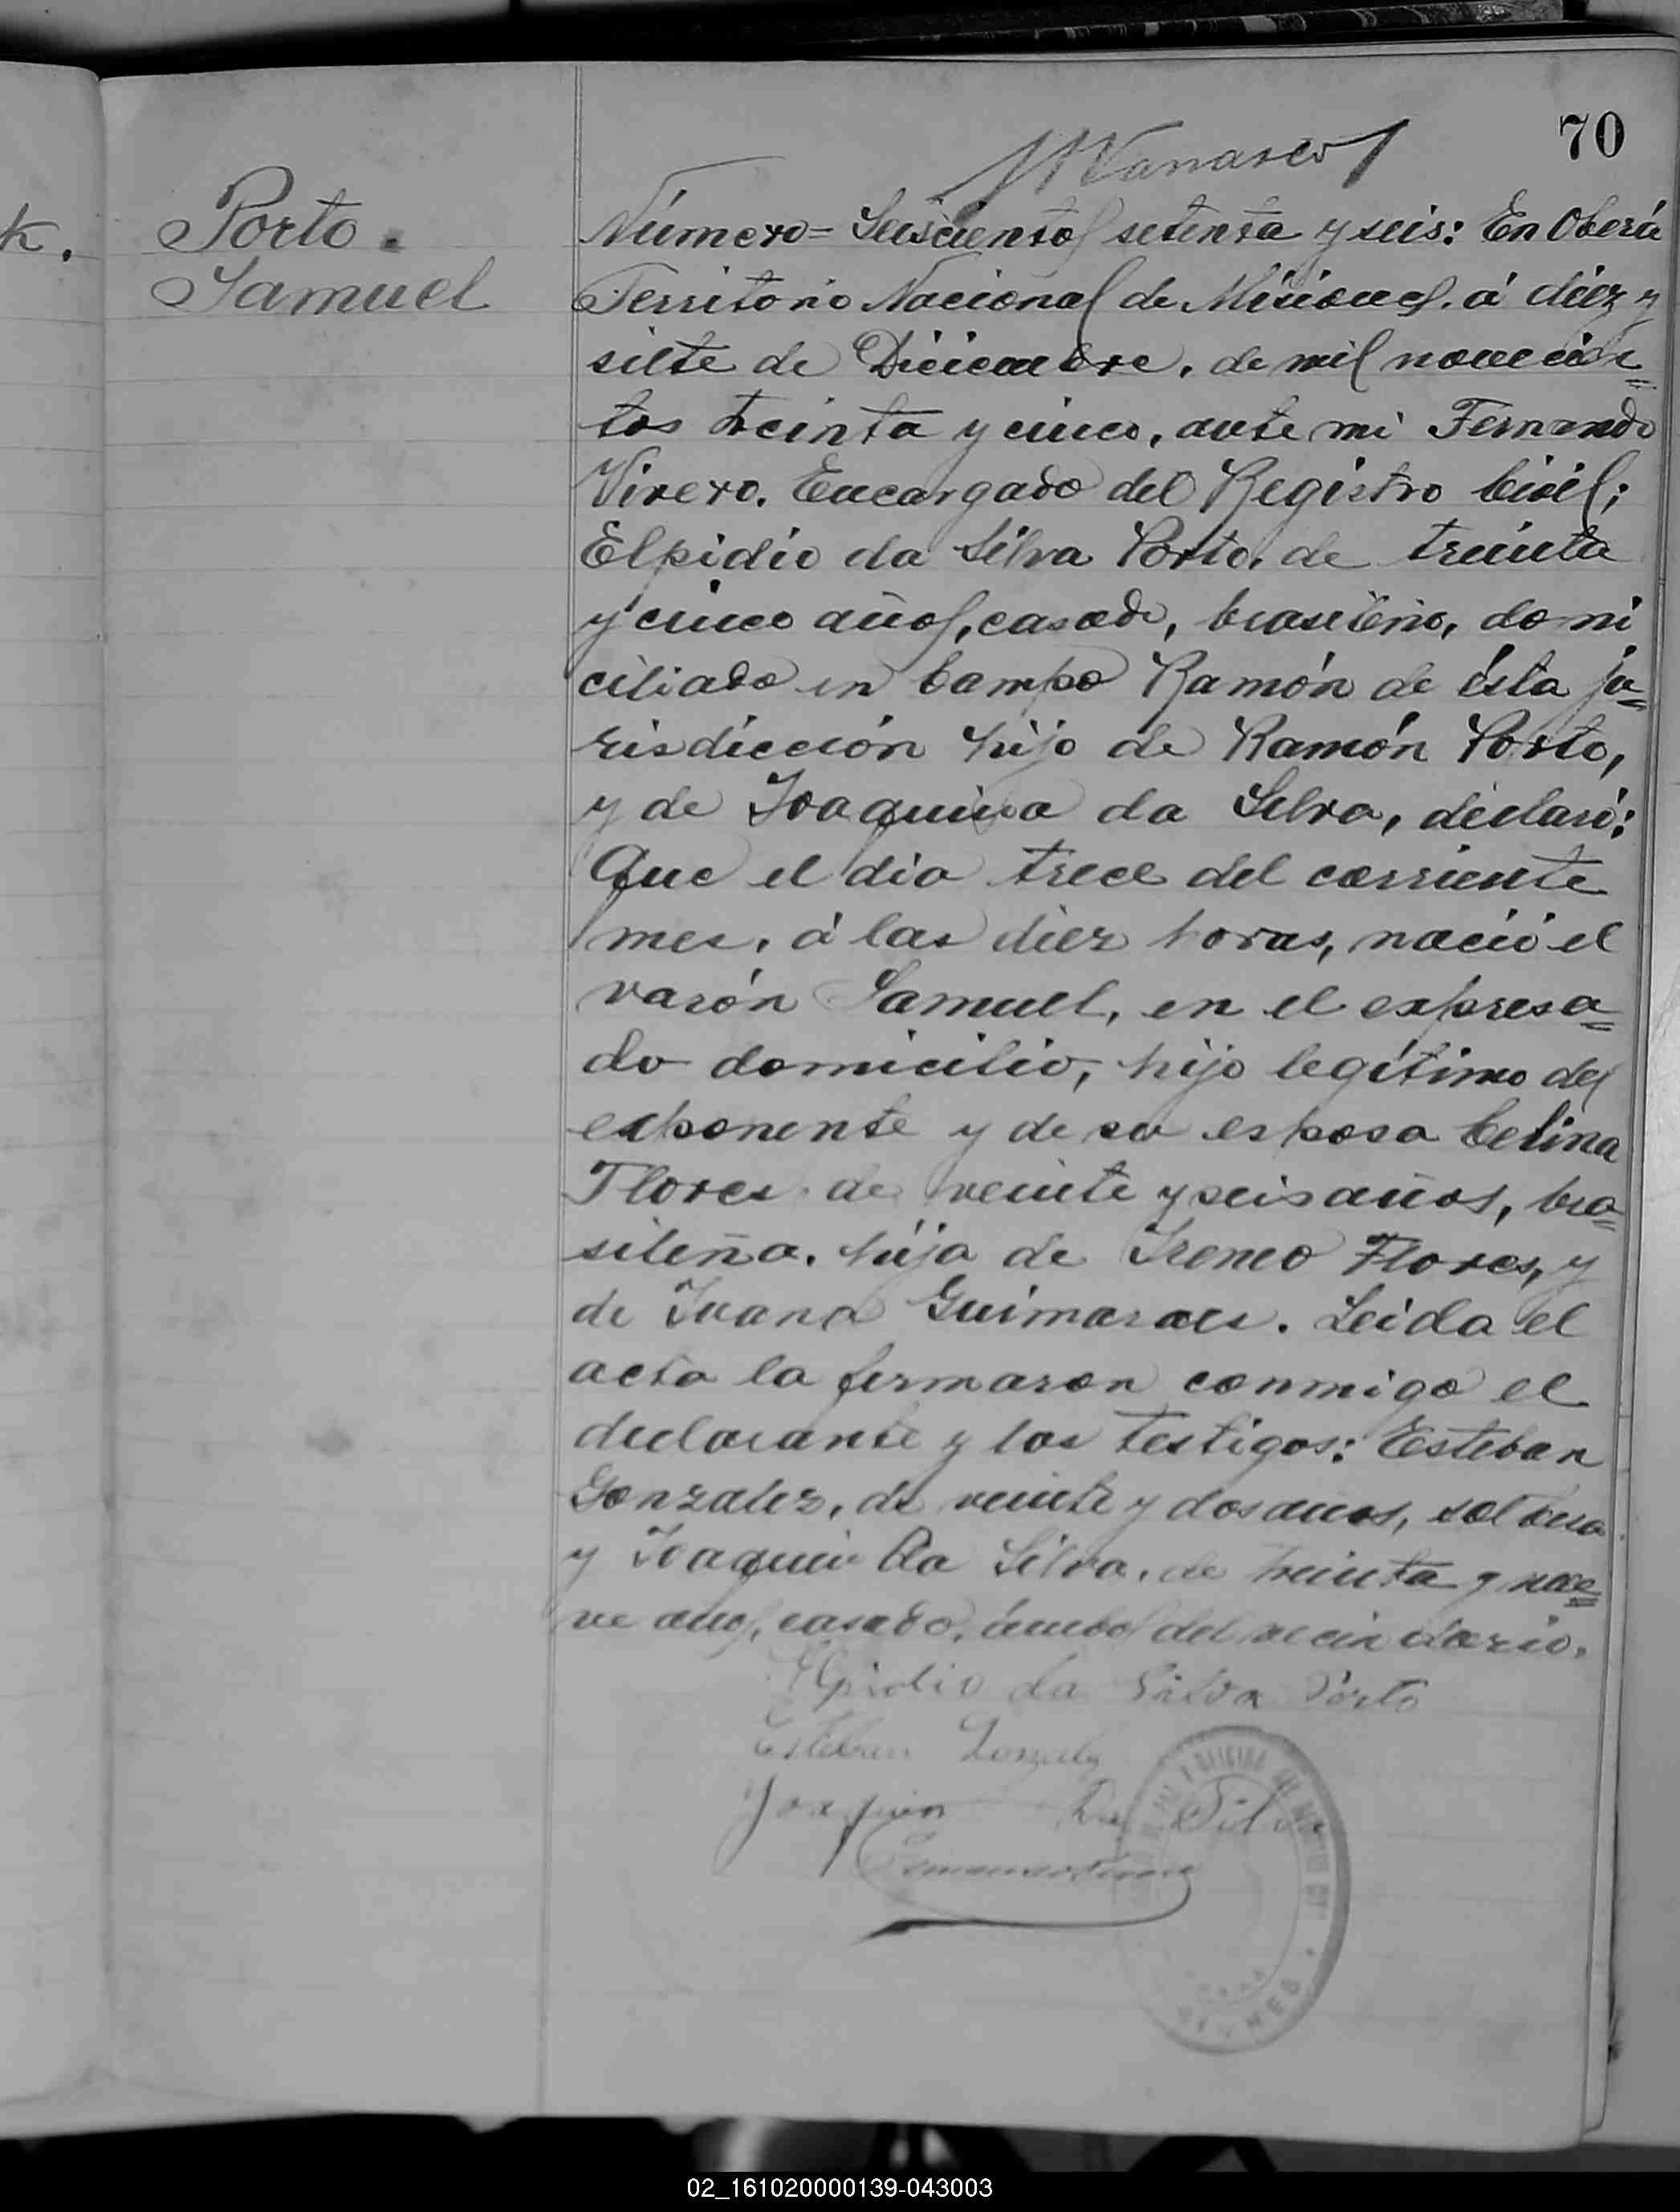 70
k.
Porto.
Samuel
Número= Seiscientos setenta y seis: En Oberá
Territorio Nacional de Misiones. á diez y
siete de Diciembre. de mil novecien=
tos treinta y cinco, ante mi Fernando
Vivero. Encargado del Registro Civil;
Elpidio da Silva Porto. de treinta
y cinco años, casado, brasileño, domi
ciliado en Campo Ramón de ésta ju=
risdicción hijo de Ramón Porto,
y de Joaquina da Silva, declaró:
Que el dia trece del corriente
mes. á las diez horas, nació el
varón Samuel, en el expresa=
do domicilio, hijo legítimo del
exponente y de su esposa Celina
Flores. de veinte y seis años, bra=
sileña. hija de Ireneo Flores, y
de Juana Guimaraes. Leida el
acta la firmaron conmigo el
declarante y los testigos: Esteban
Gonzalez, de veinte y dos años, soltero
y Joaquin da Silva. de treinta y nue=
ve años, casado, ámbos del vecindario.
Elpidio da Silva Porto
Esteban Gonzalez
Joaquin Da Silva
02_161020000139-043003